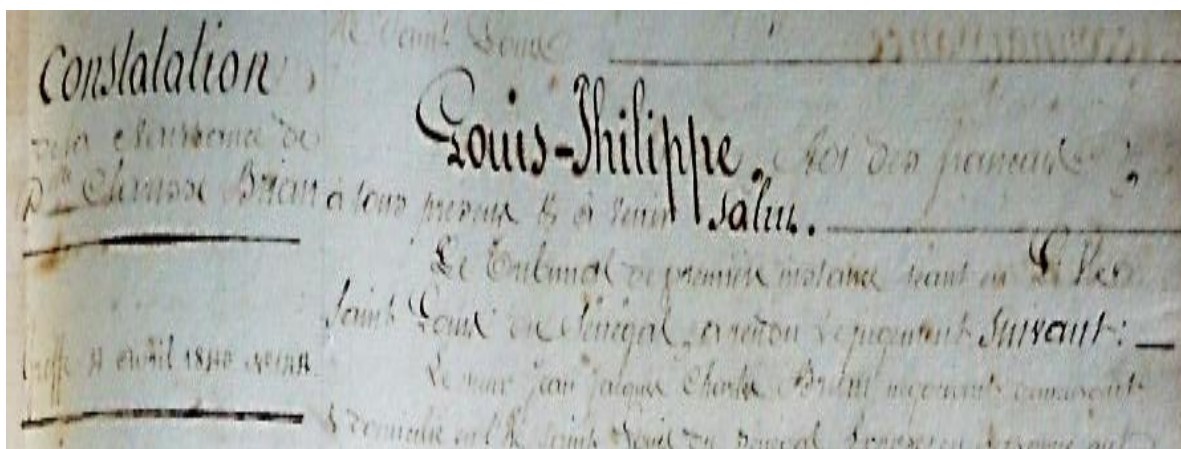 Constatation
de la Naissance de
Dlle Clarisse Brian
Greffe avril 1840
de Saint Louis
Louis-Philippe, Roi des français
à tous présens & à venir Salut.
Le Tribunal de première instance séant en l'Ile
Saint Louis du Sénégal, a rendu le jugement Suivant :
Le sieur Jean Jacques Charles Brian négociant demeurant
& domicilié en l'Ile Saint Louis du Sénégal